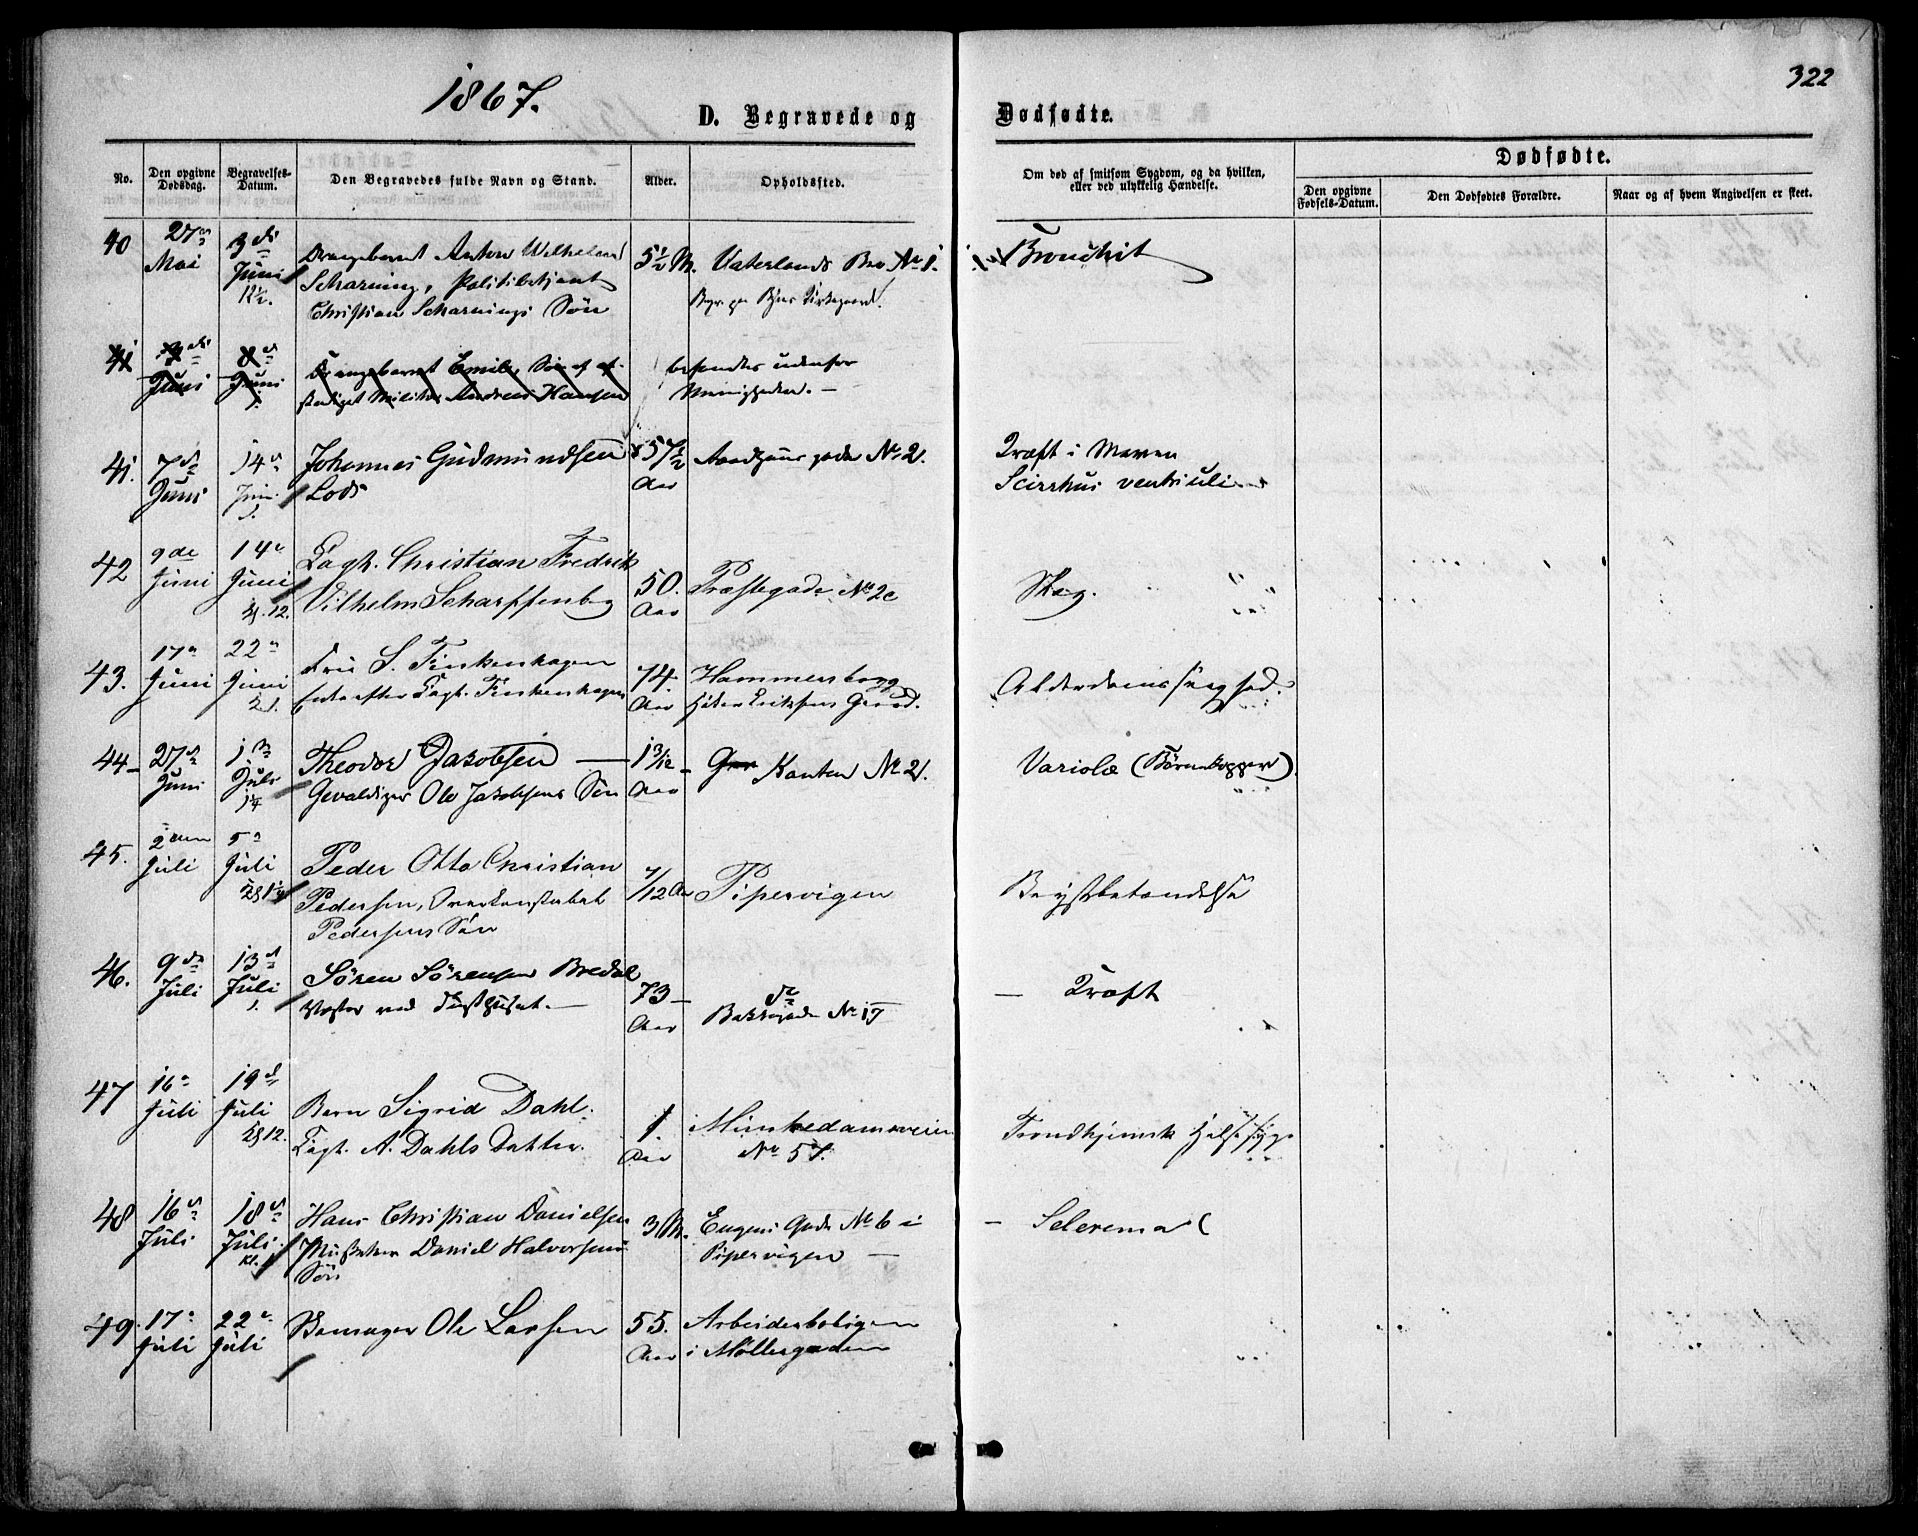 1867.
322
D. Begravede og
Dødfødte.
No.
Den opgivne Dødsdag.
Begravelses-Datum.
Den Begravedes fulde Navn og Stand.
Alder.
Opholdssted.
Om død af smitsom Sygdom, og da hvilken, eller ved ulykkelig Hændelse.
Dødfødte.
Den opgivne Fødsels-Datum.
Den Dødfødtes Forældre.
Naar og af hvem Angivelsen er skeet.
40
27de Mai
3die Juni
Drengebarnet Anton Wilhelm
Scharning, Politibetjent
Christian Scharnings Søn
5½ M.
Vaterlands Bro No 1.
Bronchit
41
Juni
8de Juni
Drengebarnet Emil, Søn af af-
skediget Militær Andreas Hansen
befandtes udenfor
Menigheden. —
41.
7de Juni
14de Juni
Johannes Gudmundsen
Lods
57½ Aar
No 2.
Kræft i Maven
Scirrhus ventriculi
42
9de Juni
14de Juni
Kl. 12.
Capt. Christian Fredrik
Vilhelm Scharffenberg
50. Aar
Præstegade No 2c
43.
17de Juni
22de Juni
Fru S. Finkenhagen
Enke efter Capt. Finkenhagen
74. Aar
Hammersborg
Eriksens Gaard.
Alderdomssvaghed.
44
27de Juni
1ste Juli
Theodor Jakobsen
Gevaldiger Ole Jakobsens Søn
1 3/12 Aar
Kanten No 2.
Variolæ (Børnekopper)
45.
2den Juli
5te Juli
Peder Otto Christian
Pedersen,
Pedersens Søn
7/12 Aar
Pipervigen
Brystbetændelse
46.
9de Juli
13de Juli
Søren Sørensen Bredal
Vagter ved Tugthuset. —
73 Aar
Bakkegade No 17
— Kræft
47
16de Juli
19de Juli
Kl 12.
Barn Sigrid Dahl.
Capt. A. Dahls Datter.
1. Aar
Munkedamsveien
No 57.
Trondhjemsk Halssyge
48
16de Juli
18de Juli
Kl. 1
Hans Christian Danielsen
Musketeer Daniel Halvorsens
Søn
3 M.
Eugeni Gade No 6 i
Pipervigen —
— Sclerema
49.
17de Juli
22de Juli
Ole Larsen
55. Aar
Arbeiderboligen
i Møllergaden